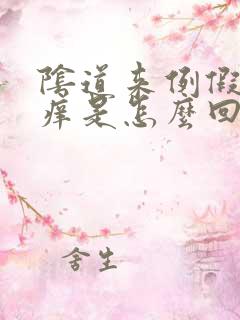 陰道来例假
痒是怎麼回
舍生